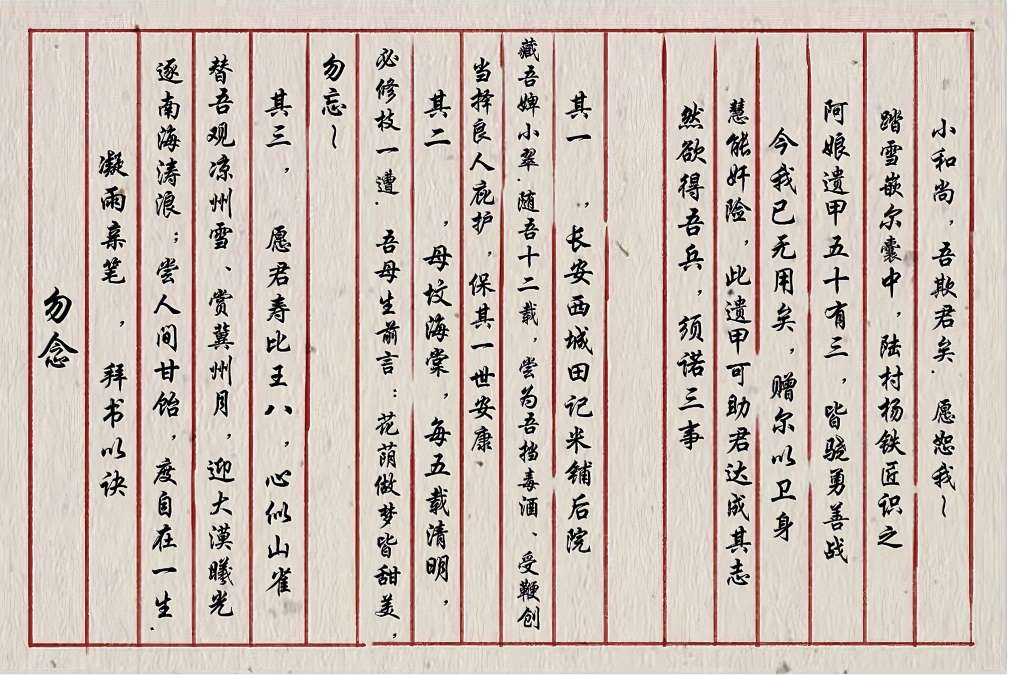 小和尚，吾欺君矣. 愿恕我~
踏雪嵌尔囊中，陆村杨铁匠识之
阿娘遗甲五十有三，皆骁勇善战
今我已无用矣，赠尔以卫身
慧能奸险，此遗甲可助君达成其志
然欲得吾兵，须诺三事
其一，长安西城田记米铺后院
藏吾婢小翠.随吾十二载，尝为吾挡毒酒、受鞭创
当择良人庇护，保其一世安康
其二，母坟海棠，每五载清明，
必修枝一遭. 吾母生前言：花荫做梦皆甜美，
勿忘~
其三，愿君寿比王八，心似山雀
替吾观凉州雪、赏冀州月，迎大漠曦光
逐南海涛浪；尝人间甘饴，度自在一生.
凝雨亲笔，拜书以诀
勿念